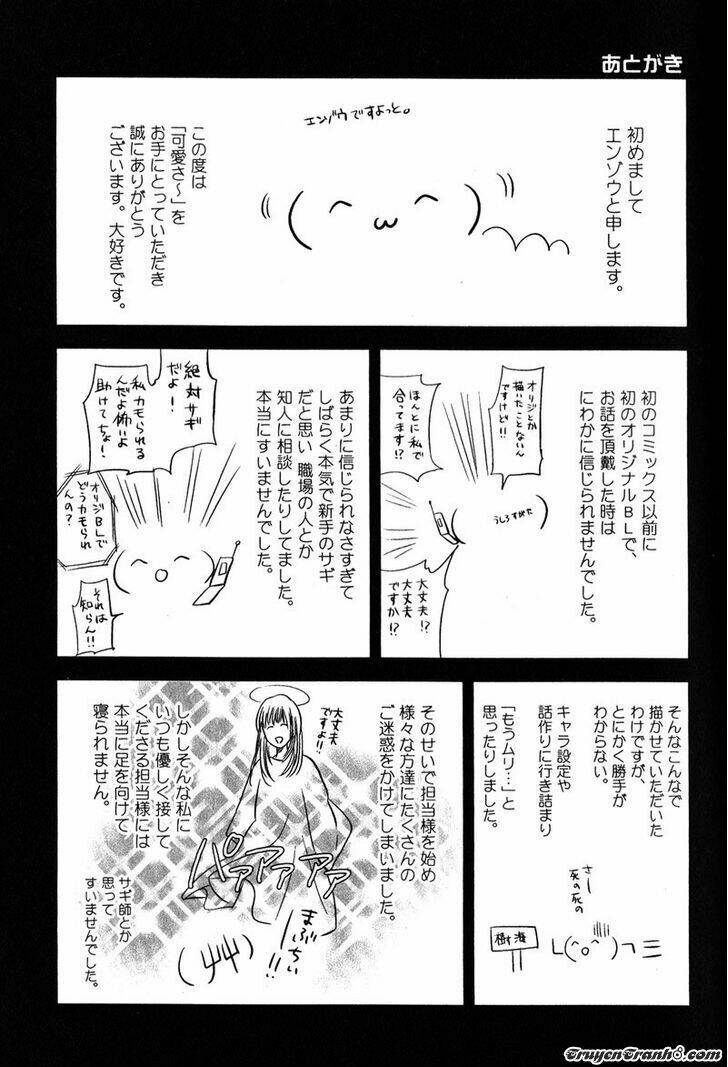 あとがき
初めまして
エンゾウと申します。
エンゾウですよっと。
この度は
「可愛さ〜」を
お手にとっていただき
誠にありがとう
ございます。大好きです。
初のコミックス以前に
初のオリジナルBLで、
お話を頂戴した時は
にわかに信じられませんでした。
オリジとか
描いたことないん
ですけど!!
ほんとに私で
合ってます!?
うしろすがた
大丈夫
大丈夫
ですか!?
あまりに信じられなさすぎて
しばらく本気で新手のサギ
だと思い 職場の人とか
知人に相談したりしてました。
本当にすいませんでした。
絶対サギ
だよ!
私カモられる
んだよ怖いよ
助けてちょ!
オリジBLで
どうカモられ
んの?
それは
知らん!!
そんなこんなで
描かせていただいた
わけですが、
とにかく勝手が
わからない。
キャラ設定や
話作りに行き詰まり
「もうムリ…」と
思ったりしました。
さー
死の死の
樹海
そのせいで担当様を始め
様々な方達にたくさんの
ご迷惑をかけてしまいました。
大丈夫
ですよ!
しかしそんな私に
いつも優しく接して
くださる担当様には
本当に足を向けて
寝られません。
パアアアアァァ
まぶちい
!!
サギ師とか
思って
すいませんでした。
TruyenTranh8.com